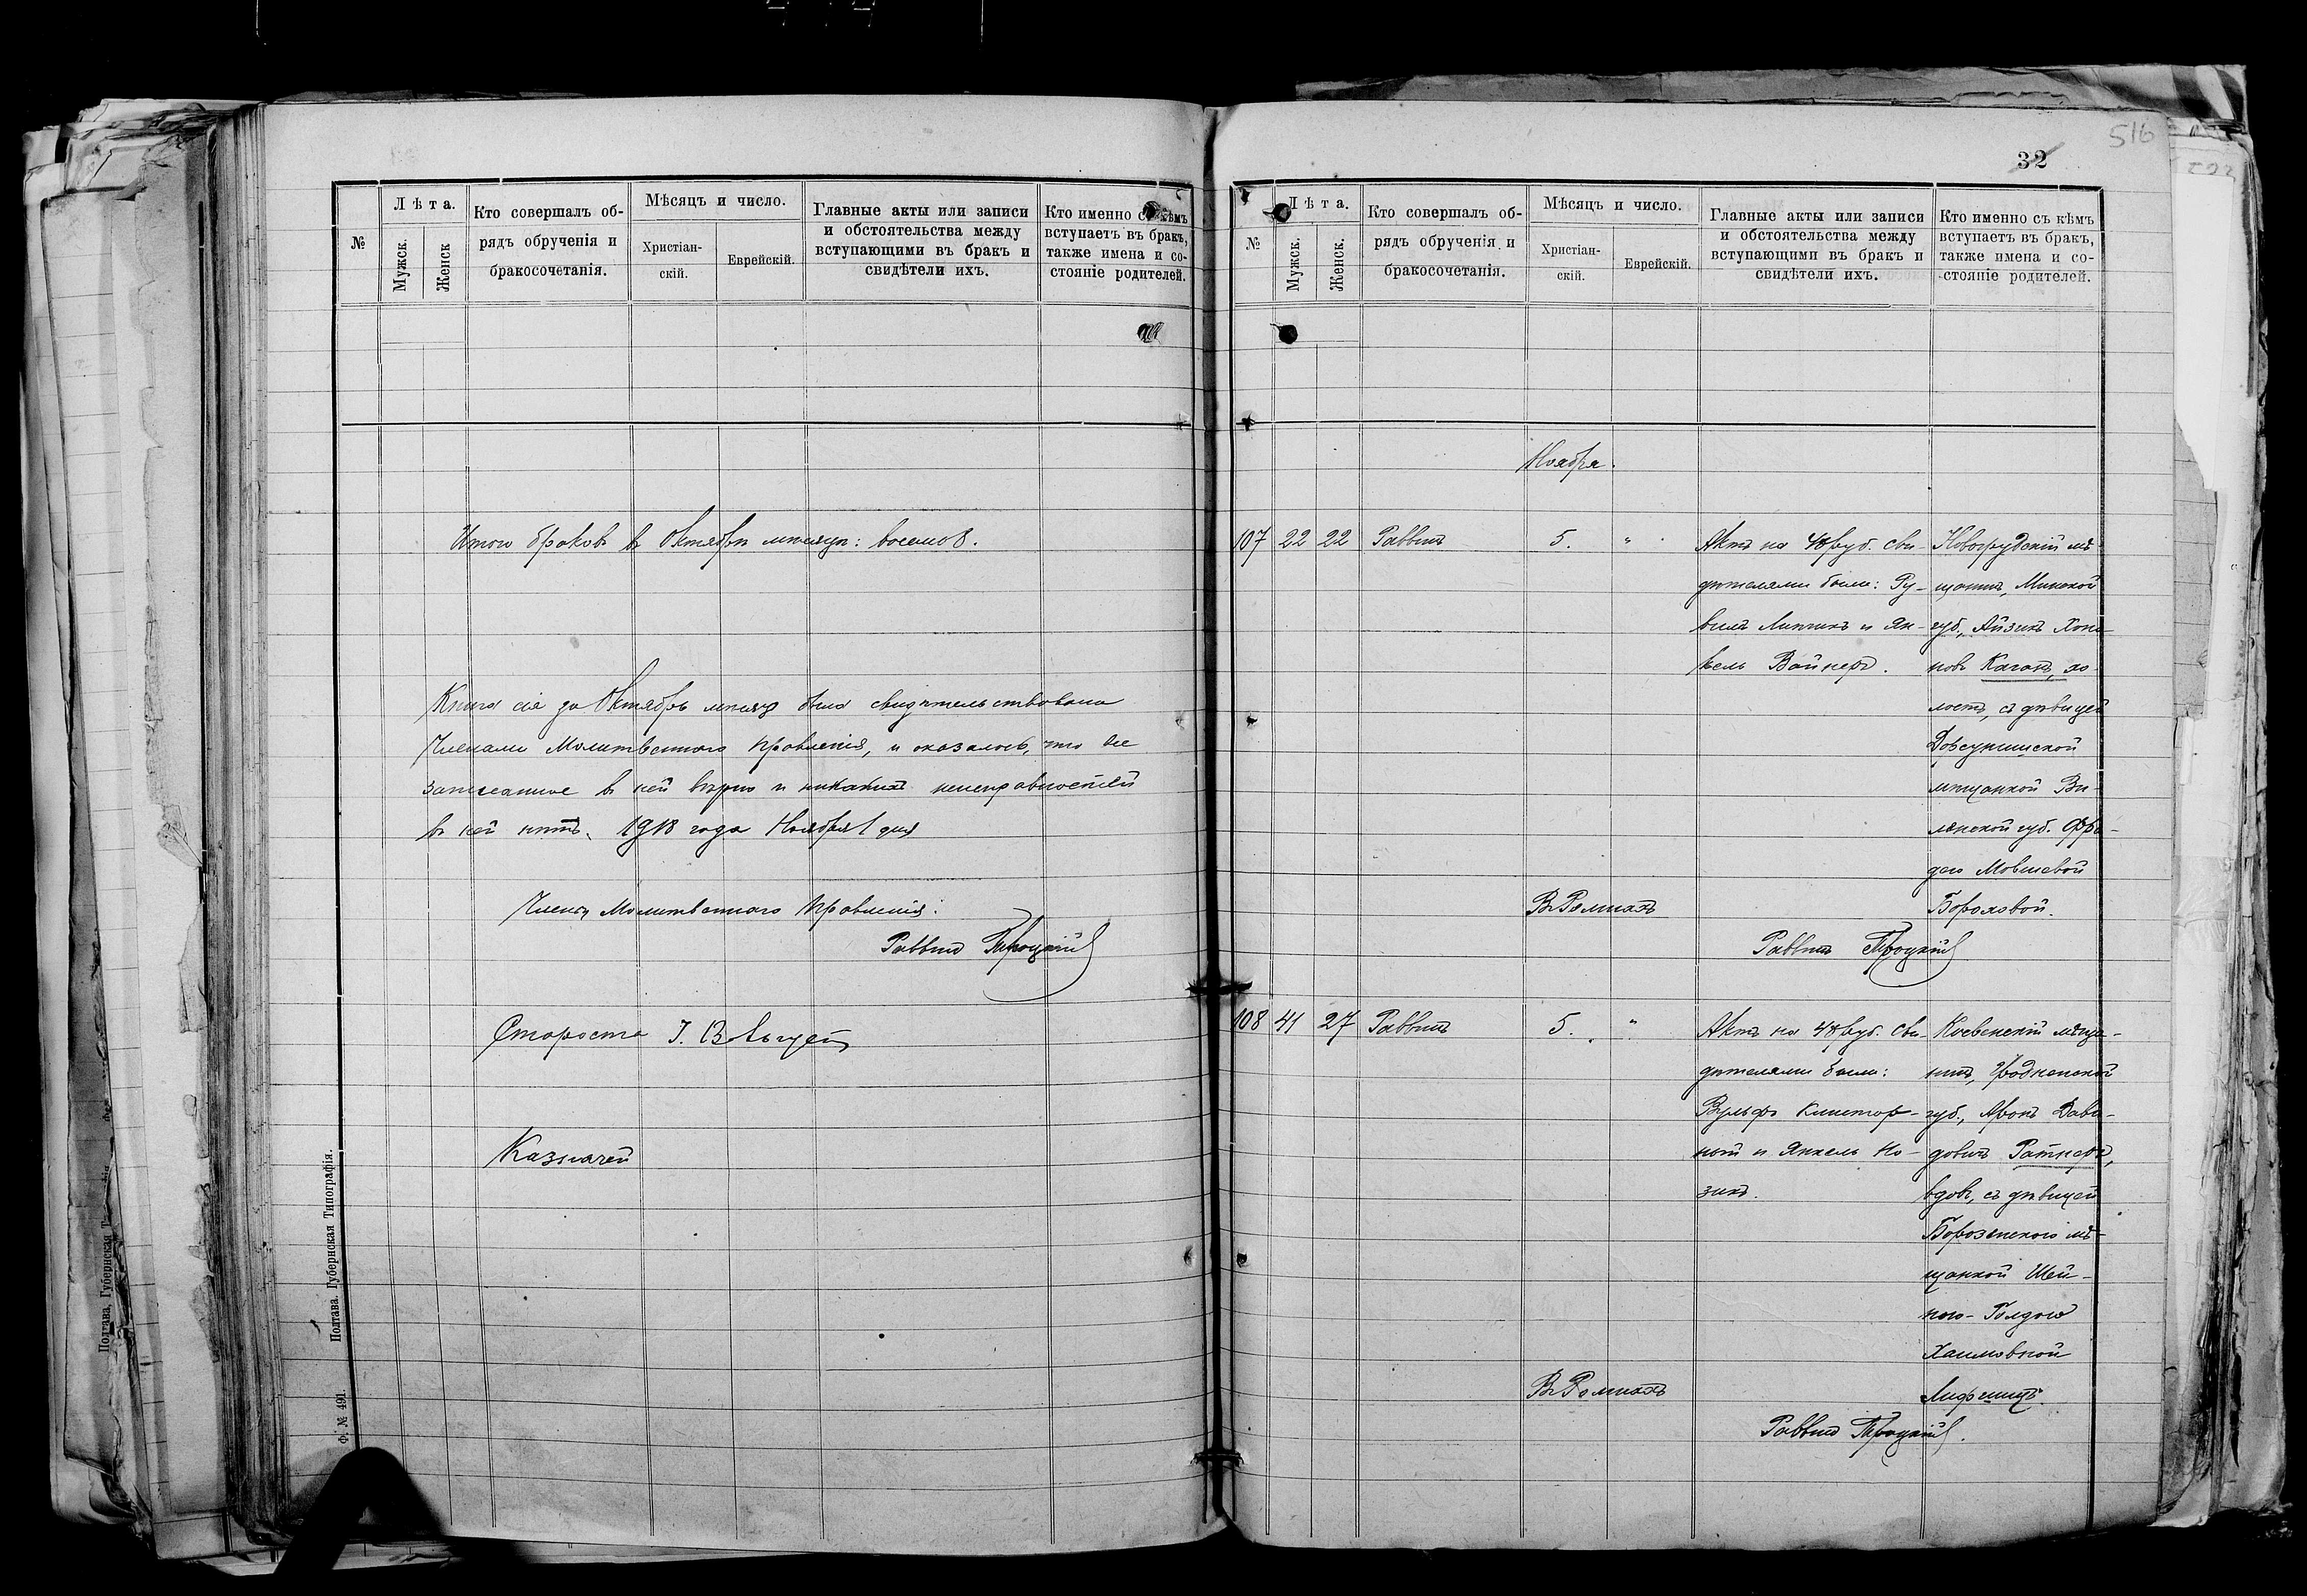 №
Лѣта.
Мужск.
Женск
Кто совершалъ об-
рядъ обрученія и
бракосочетанія.
Мѣсяцъ и число.
Христіан-
скій.
Еврейскій.
Главные акты или записи
и обстоятельства между
вступающими въ бракъ и
свидѣтели ихъ.
Кто именно съ кѣмъ
вступаетъ въ бракъ,
также имена и со-
стояніе родителей.
Итого браковъ въ Октябрѣ мѣсяцѣ: восемь.
Книга сія за Октябрь мѣсяцъ была свидѣтельствована
Членами Молитвеннаго Правленія, и оказалось, что все
записанное въ ней вѣрно и никакихъ неисправностей
въ ней нѣтъ. 1918 года Ноября 1 дня
Члены Молитвеннаго Правленія:
Раввинъ Троцкій
Староста І.
Казначей
Полтава. Губернская Типографія.
Ф. № 491.
Полтава, Губернская
516
32
№
Лѣта.
Мужск.
Женск.
Кто совершалъ об-
рядъ обрученія и
бракосочетанія.
Мѣсяцъ и число.
Христіан-
скій.
Еврейскій.
Главные акты или записи
и обстоятельства между
вступающими въ бракъ и
свидѣтели ихъ.
Кто именно съ кѣмъ
вступаетъ въ бракъ,
также имена и со-
стояніе родителей.
Ноября.
107 22 22 Раввинъ 5. "
Актъ на 48 руб. сви-
дѣтелями были: Ру-
вимъ Липчинъ и Ян-
кель Вайнеръ.
Новогрудскій мѣ-
щанинъ, Минской
губ., Айзикъ Хона-
новъ Каганъ, хо-
лостъ, съ дѣвицей
Довгунишской
мѣщанкой Ви-
ленской губ. Фра-
дею Мовшевой
Бороховой.
Въ Ромнахъ
Раввинъ Троцкій
108 41 27 Раввинъ 5. "
Актъ на 48 руб. сви-
дѣтелями были:
Вульфъ
и Янкель Но-
зикъ.
мѣща-
нинъ, Гродненской
губ., Аронъ Дави-
довичъ Ратнеръ,
вдовъ, съ дѣвицей
Борозенского мѣ-
щанкой Шей-
ною-Голдою
Хаимовной
Лифшицъ.
Въ Ромнахъ
Раввинъ Троцкій.